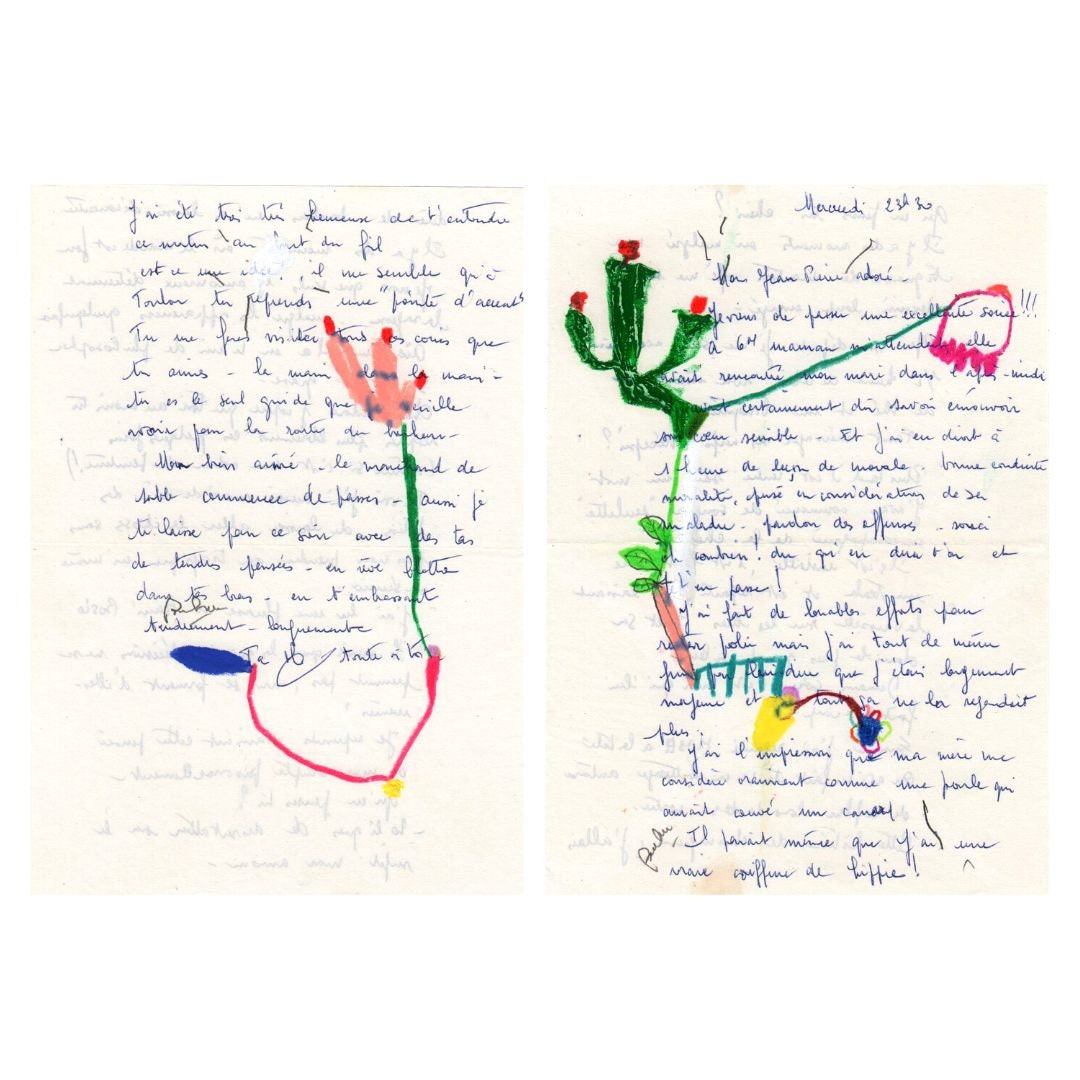 J'ai été très très heureuse de t'entendre
ce matin au bout du fil
est ce une idée, il me semble qu'à
Toulon tu reprends une "pointe d'accent"
Tu me feras visiter tous les coins que
tu aimes - la main dans la main -
tu es le seul guide que je veuille
avoir pour la route du bonheur -
Mon bien aimé - le marchand de
sable commence de passer - aussi je
te laisse pour ce soir avec des tas
de tendres pensées - en me
dans tes bras - en t'embrassant
tendrement - longuement
Ta toute à toi
Mercredi 23h30
Mon Jean Pierre adoré
Je viens de passer une excellente soirée!!!
A 6H maman m'attendait, elle
avait rencontré mon mari dans l'après-midi
avait certainement dû savoir émouvoir
son cœur sensible - Et j'ai eu droit à
1 heure de leçon de morale - bonne conduite
moralité, prise en considération de sa
maladie - pardon des offenses - souci
oh combien! du qu'en dira t'on et
j'en passe!
J'ai fait de louables efforts pour
rester polie mais j'ai tout de même
fini par lui dire que j'étais largement
majeure et que tout ça ne la regardait
plus.
J'ai l'impression que ma mère me
considère vraiment comme une poule qui
aurait couvé un canard
Il parait même que j'ai une
vraie coiffure de hippie!